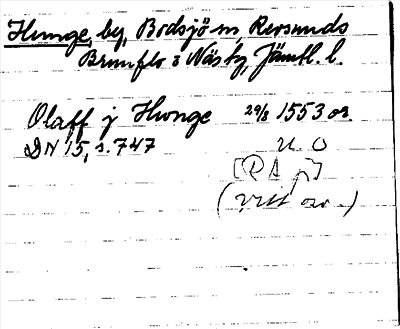 Hunge, by, Bodsjö sn Revsunds
Brunflo o Näsby, Jämtl. l.
Olaff j Hunge 29/8 1553 or.
DN 15, s. 747 U O
[RA p]
(vitt osv.)